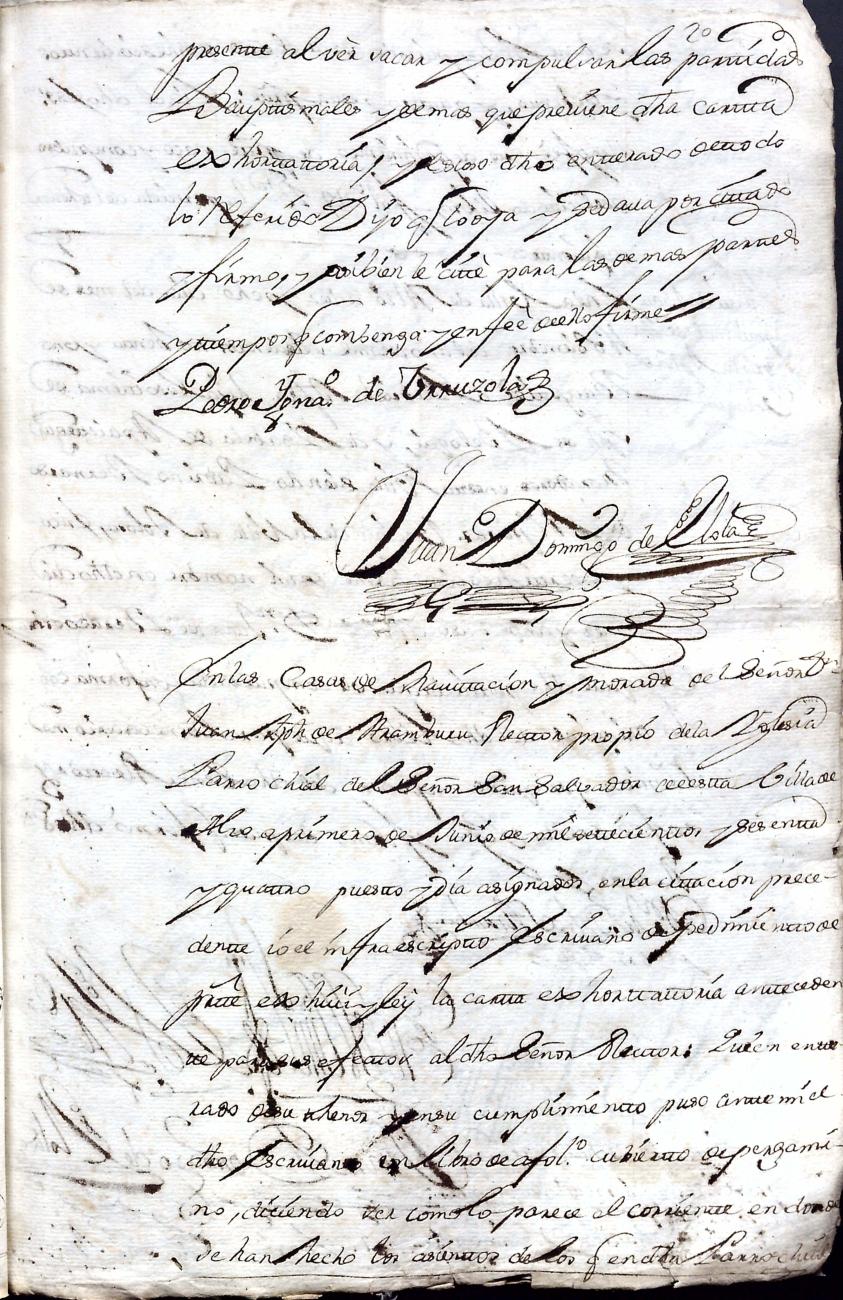 20
presente al ver sacar y compulsar las partidas
Bauptismales y demas que previene dha cartta
exhorttatoria, y el suso dho entterado de ttodo
lo referido Dijo q lo oya y se dava por cittado
y firmo, y tambien le citté para las demas parttes
y ttiempos q combenga y en feè de ello firme
Pedro Ygnaº de Urruzola
Juan Domingo de Olola
En las Casas de Havittacion y morada del Señor Dn
Juan Jph de Aramburu Rector propio de la Yglesia
Parrochial del Señor San Salvador de estta Villa de
a primero de Junio de mil settecienttos y sesentta
y quattro puestto y dia asignados en la cittacion prece-
dentte io el infraescriptto Escrivano de pedimientto de
partte exhiví y leÿ la cartta exhorttattoria antteceden
tte para sus efectos al dho Señor Rector: Quien entte-
rado de su thenor y en su cumplimientto puso antte mi el
dho Escrivano un libro de a folº cubiertto de pergami-
no, diciendo ser como lo parece el corrientte en donde
se han hecho los asienttos de los q en dha Parrochial